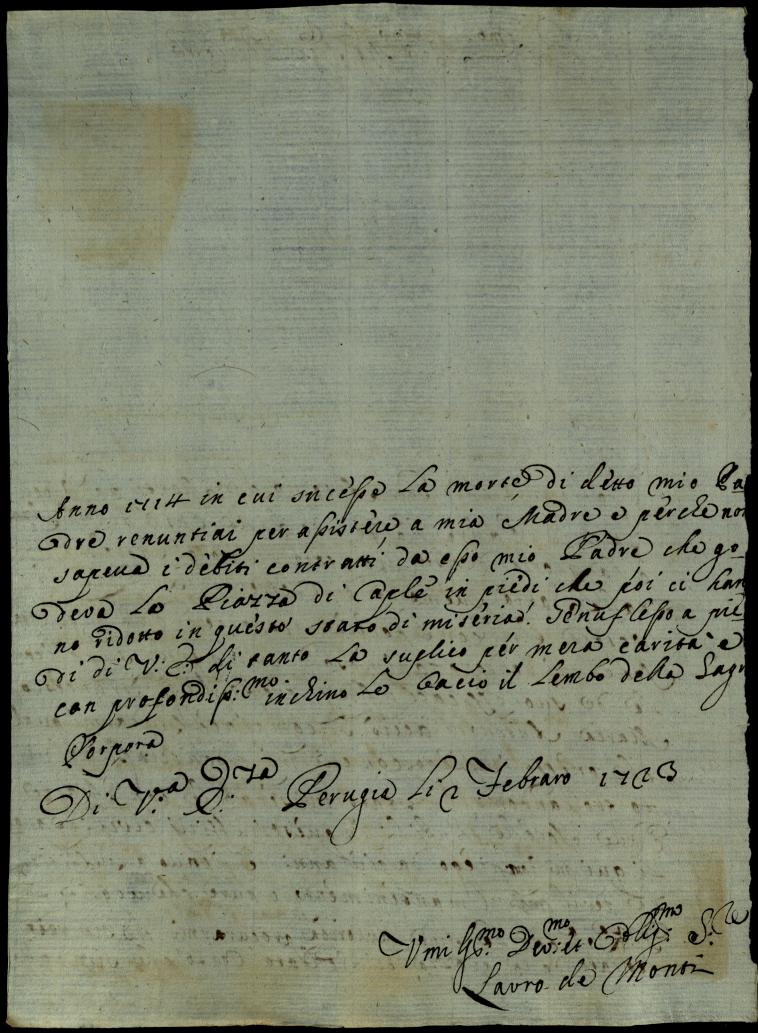 Anno 1714 in cui successe La morte di detto mio Pa
dre renuntiai per assistere a mia Madre e perche non
sapeva i debiti contratti da esso mio Padre che go
deva La Piazza di in piedi che poi ci han
no ridotto in questo stato di miseria. Genuflesso a pie
di di V. E. di tanto La suplico per mera carita e
con profondiss.mo inchino Le bacio il Lembo della Sagr
Porpora
Di V.a Perugia Li 2 Febraro 1723
Umiliss.mo Dev.mo et Obblig.mo S.re
Lauro de Monti